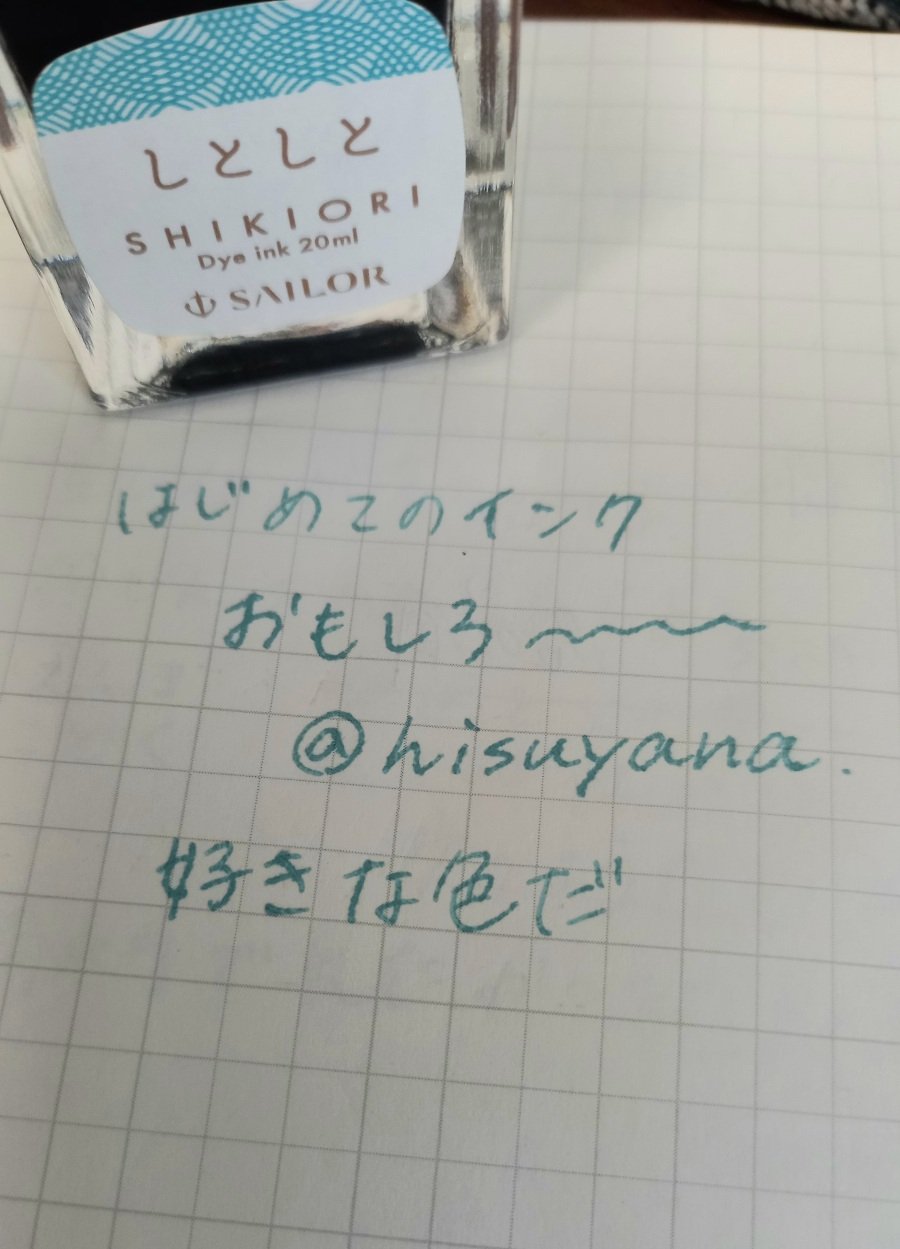 しとしと
SHIKIORI
Dye ink 20ml
SAILOR
はじめてのインク
おもしろ〜〜〜
@hisuyana.
好きな色だ